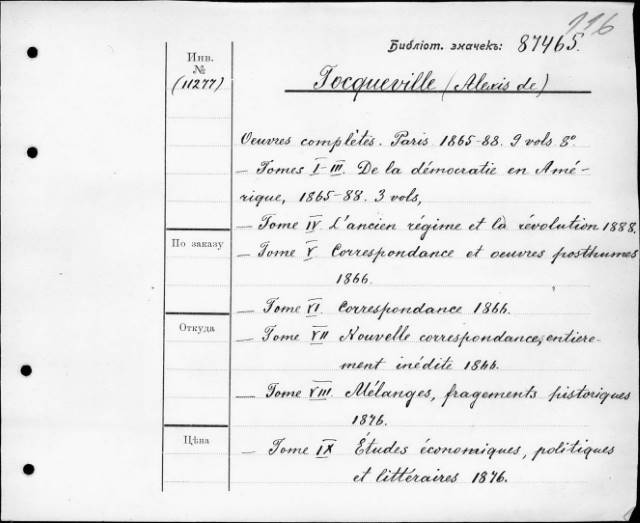 116
Библіот. значекъ: 87465.
Инв.
№
(11277)
Tocqueville (Alexis de)
Oeuvres complètes. Paris 1865-88. 9 vols 8°
— Tomes I-III. De la démocratie en Amé-
rique, 1865-88. 3 vols,
— Tome IV. L'ancien régime et la révolution 1888.
По заказу
— Tome V Correspondance et oeuvres posthumes
1866.
— Tome VI. Correspondance 1866.
Откуда
— Tome VII Nouvelle correspondance, entiere-
ment inédite 1866.
— Tome VIII. Mélanges, fragements historiques
1876.
Цѣна
— Tome IX Études économiques, politiques
et littéraires 1876.